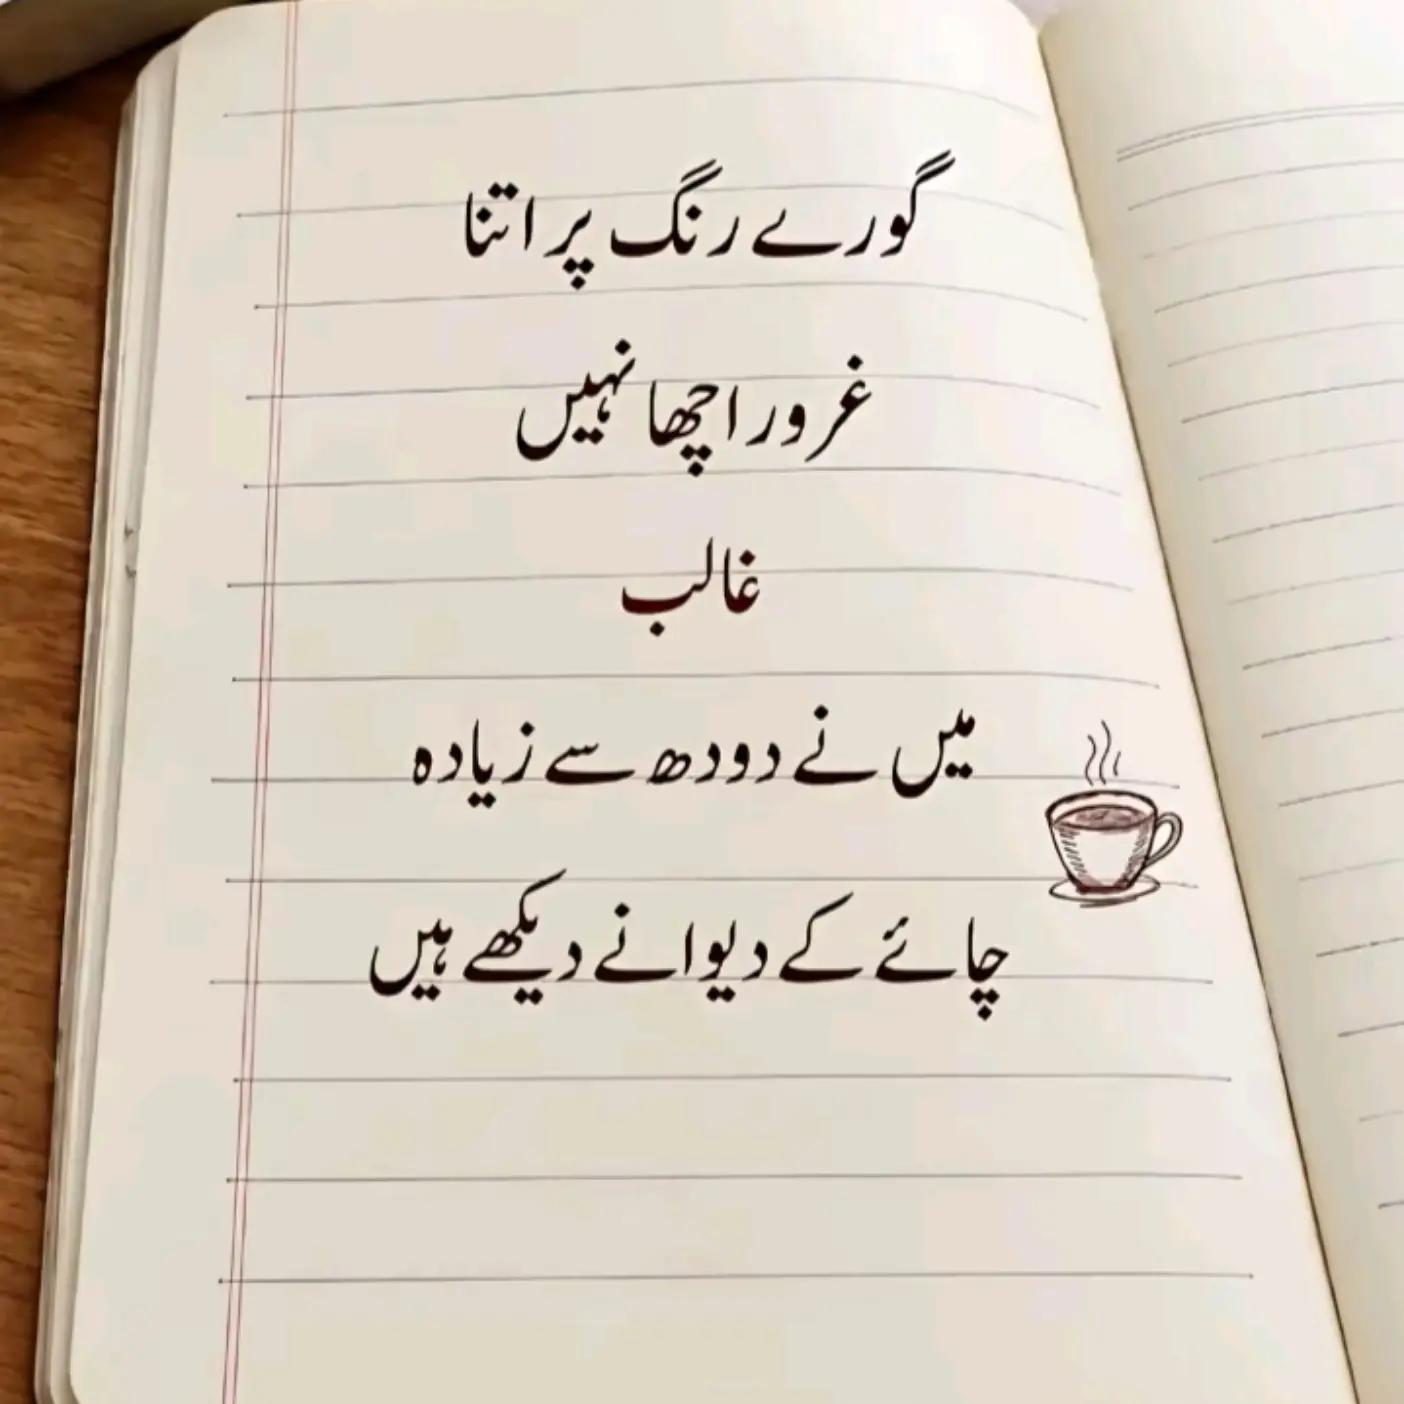 گورے رنگ پر اتنا
غرور اچھا نہیں
غالب
میں نے دودھ سے زیادہ
چائے کے دیوانے دیکھے ہیں